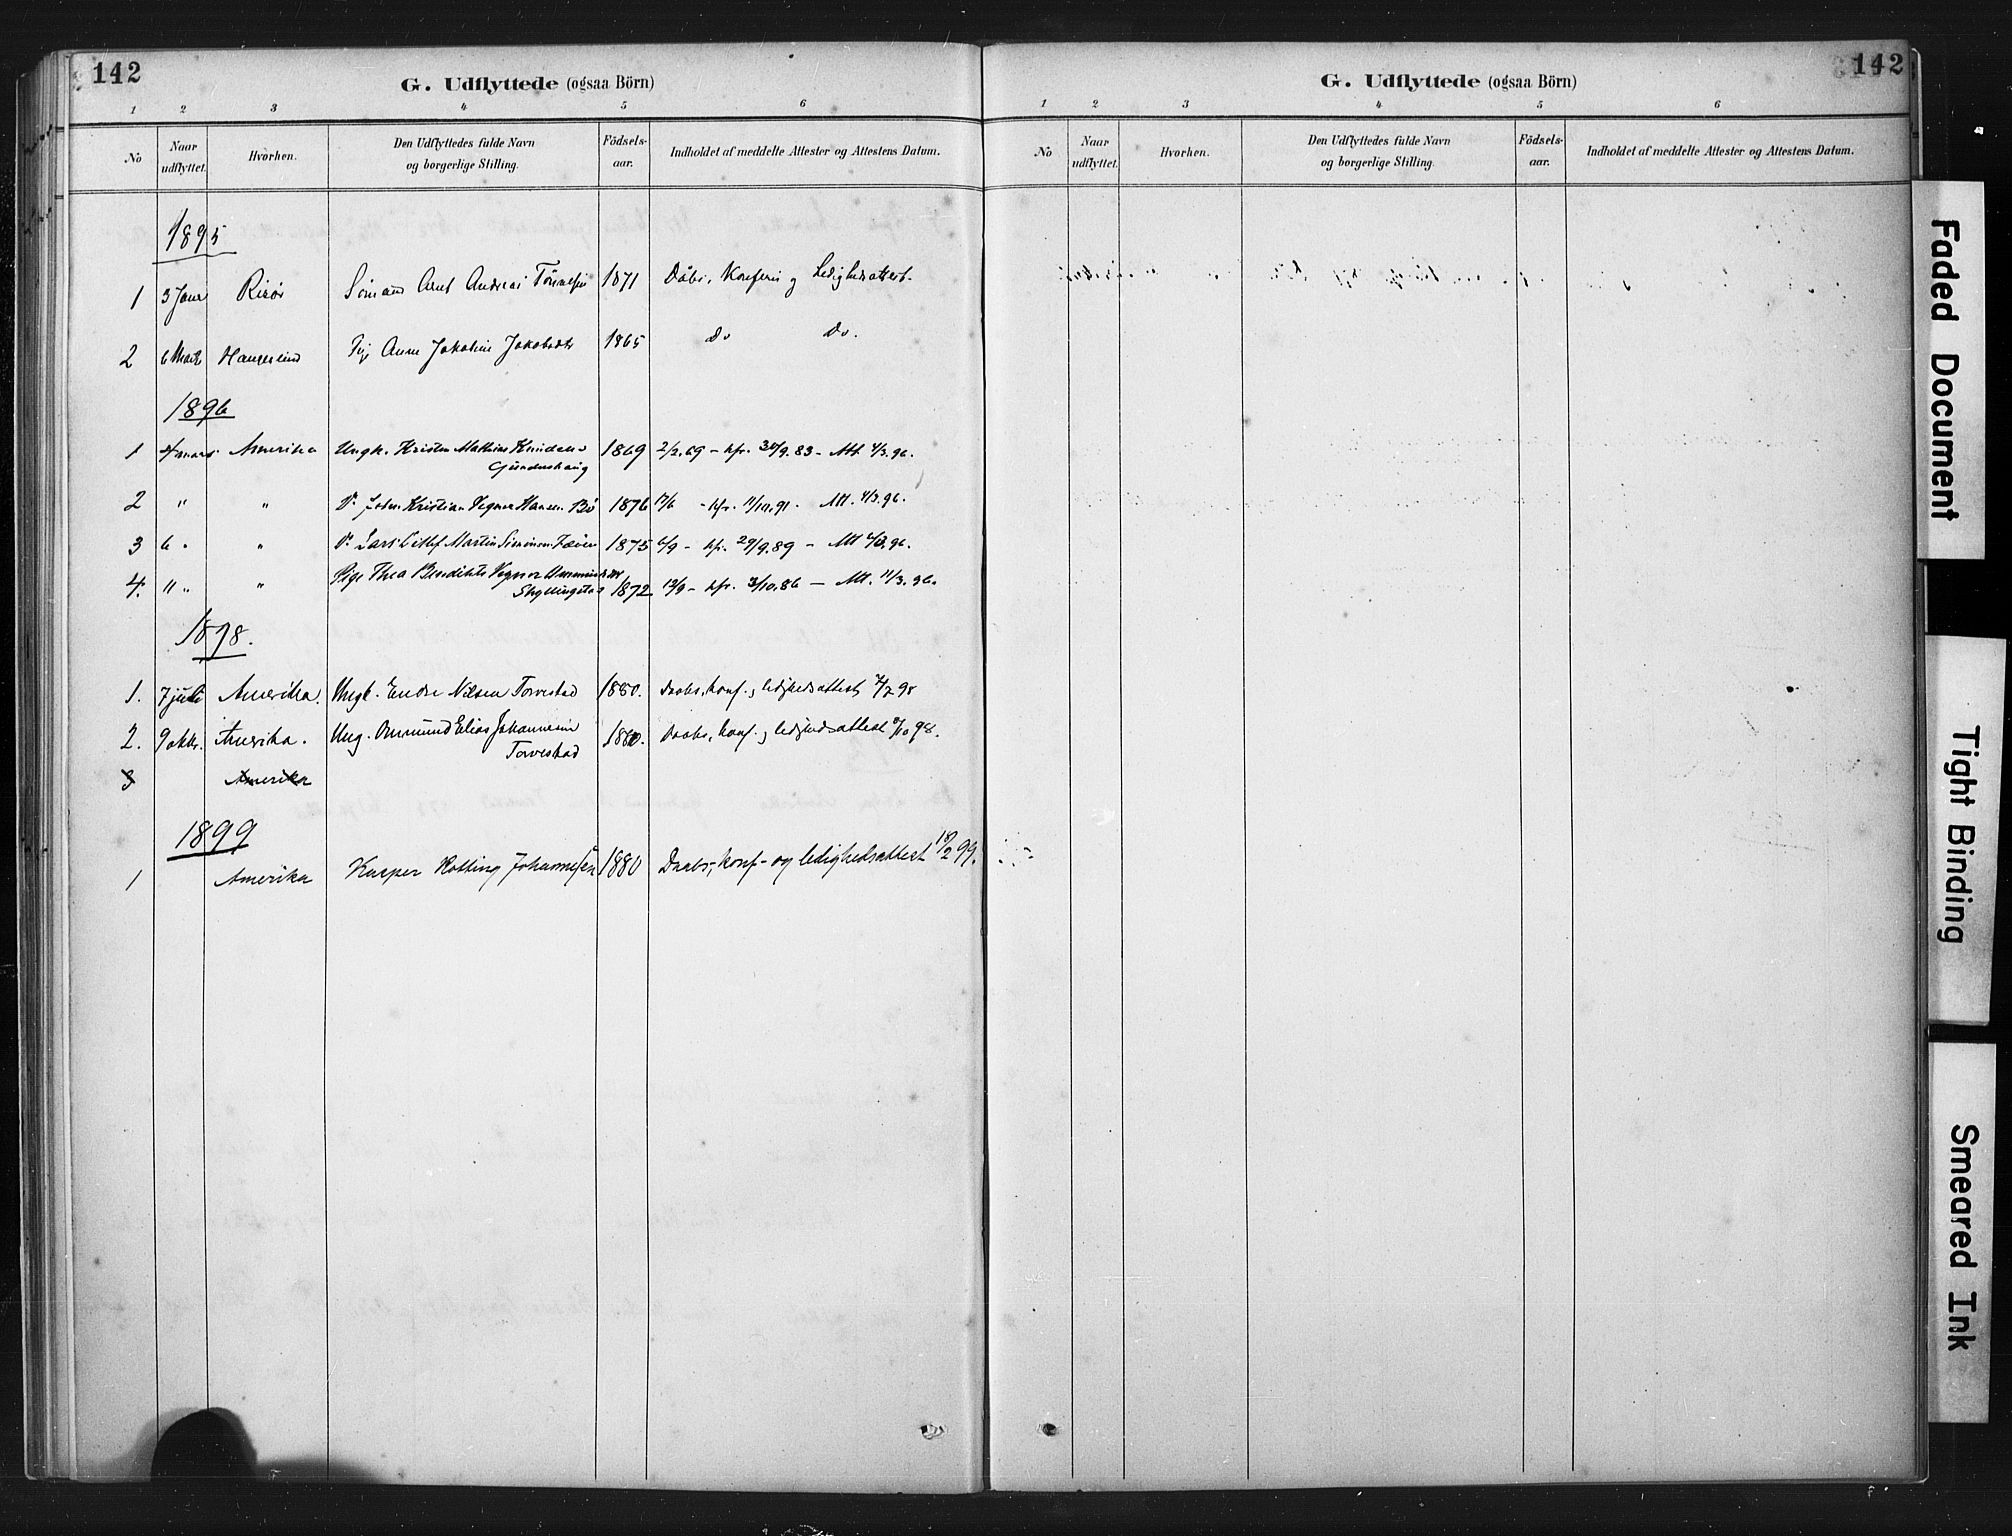 142
G. Udflyttede (ogsaa Börn)
1 2 3 4 5 6
No Naar udflyttet. Hvorhen. Den Udflyttedes fulde Navn og borgerlige Stilling. Födsels-aar. Indholdet af meddelte Attester og Attestens Datum.
1895
1 3 Janr Risör Sömand Arnt Andreas 1871 Dåbs, Konfirm og Ledighedsattest.
2 6 Anne Jakobine 1865 Do Do.
1896
1 4 mars Amerika Ungk. Kristen Mathias Knudsen 1869 2/2.69 – kfr. 9.83 – Att. 4/3.96.
2 " " Do John Kristian Vegner Hansen Bö 1876 17/6 – kfr. 11/10.91. Att. 4/3.96.
3 6 " " Do Lars Martin Simonsen 1875 6/9 – kfr. 29/9.89 – Att 96.
4. 11 " " Pige Thea Benedikte Vegner 1872 12/9 – kfr. 3/10.86 – Att. 11/3.96.
1898.
1. 7 juli Amerika. Ungk. Endre Nilsen Torvestad 1880. Daabs, konf. og ledighedsattest 98
2. 9 oktr. Amerika. Ung. Elias Johannesen
Torvestad 1880. Daabs, konf. og ledighedsattest 9/10 98.
3 Amerika
1899
1 Amerika Kasper Johannesen 1880 Daabs-, konf- og ledighedsattest 18/2 99.
142
G. Udflyttede (ogsaa Börn)
1 2 3 4 5 6
No Naar udflyttet. Hvorhen. Den Udflyttedes fulde Navn og borgerlige Stilling. Födsels-aar. Indholdet af meddelte Attester og Attestens Datum.
Faded Document
Tight Binding
Smeared Ink